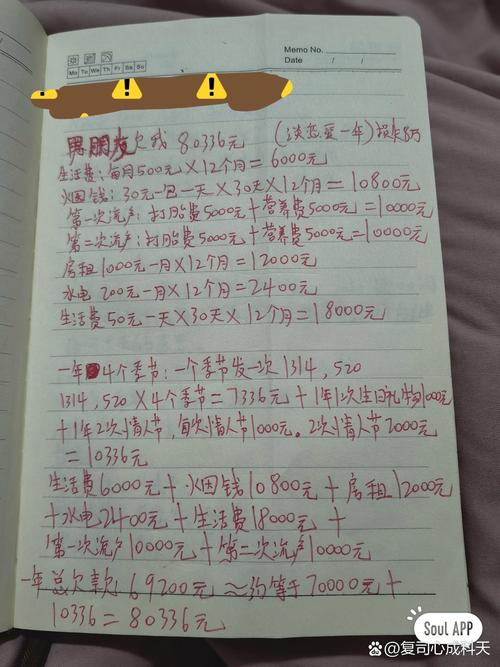 Memo No.
Mo Tu We Th Fr Sa Su
Date / /
男朋友欠我 80336元 (谈恋爱一年)损失8万
生活费:每月500元×12个月=6000元
火因钱:30元一包一天×30天×12个月=10800元
第一次流产:打胎费5000元+营养费5000元=10000元
第二次流产:打胎费5000元+营养费5000元=10000元
房租1000元一月×12个月=12000元
水电 200元一月×12个月=2400元
生活费50元一天×30天×12个月=18000元
一年4个季节:一个季节发一次1314,520
1314,520×4个季节=7336元+1年1次生日礼物1000元
+1年2次情人节,每次情人节1000元。2次情人节2000元
=10336元
生活费6000元+火因钱10800元+房租12000元
+水电2400元+生活费18000元+
第一次流产10000元+第二次流产10000元
一年总欠款:69200元≈约等于70000元+
10336=80336元
Soul APP
@复司心成料天